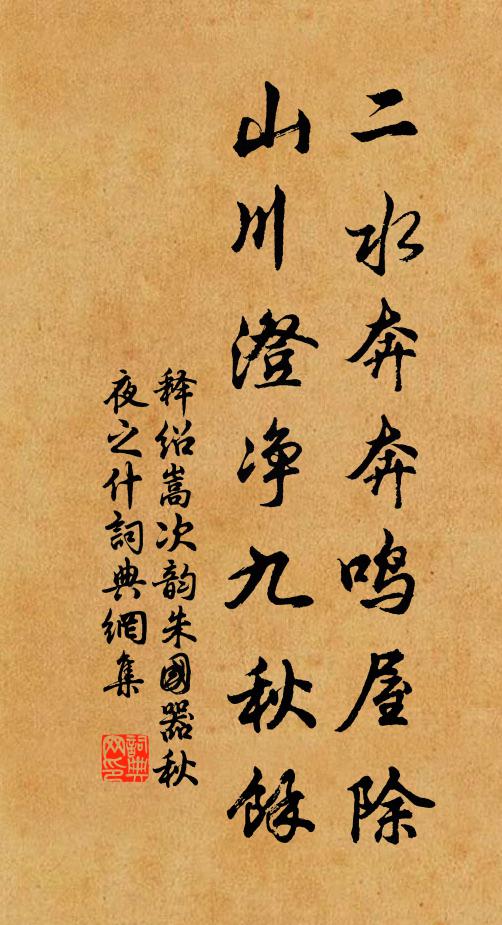 二水奔奔鸣屋除
山川澄净九秋餘
释绍嵩次韵朱國器秋
夜之什詞典網集
詞典
网印